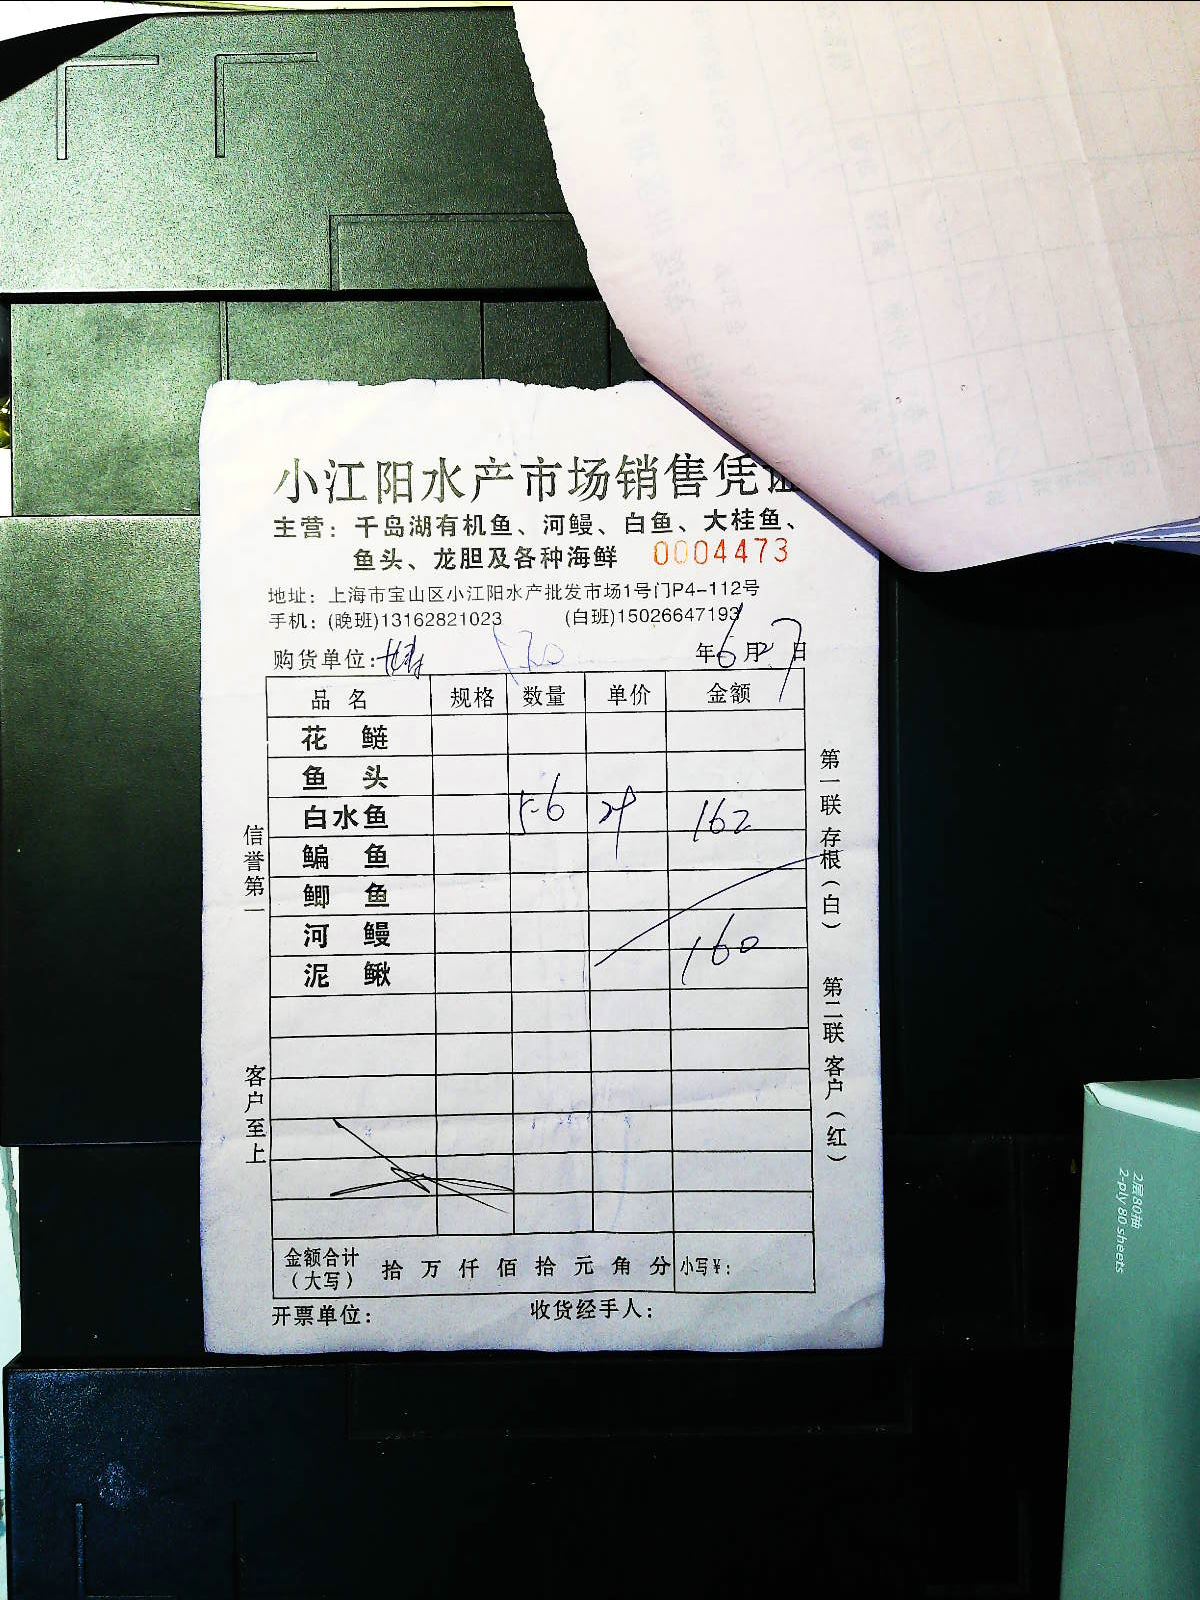 小江阳水产市场销售凭证
主营：千岛湖有机鱼、河鳗、白鱼、大桂鱼、
鱼头、龙胆及各种海鲜 0004473
地址：上海市宝山区小江阳水产批发市场1号门P4-112号
手机：(晚班)13162821023 (白班)15026647193
购货单位： 年6月27日
品名 规格 数量 单价 金额
花鲢
鱼头
白水鱼 5.6 29 162
鳊鱼
鲫鱼
河鳗 160
泥鳅
金额合计（大写） 拾万仟佰拾元角分 小写¥：
开票单位： 收货经手人：
信誉第一
客户至上
第一联 存根（白）
第二联 客户（红）
2层80抽
2-ply 80 sheets